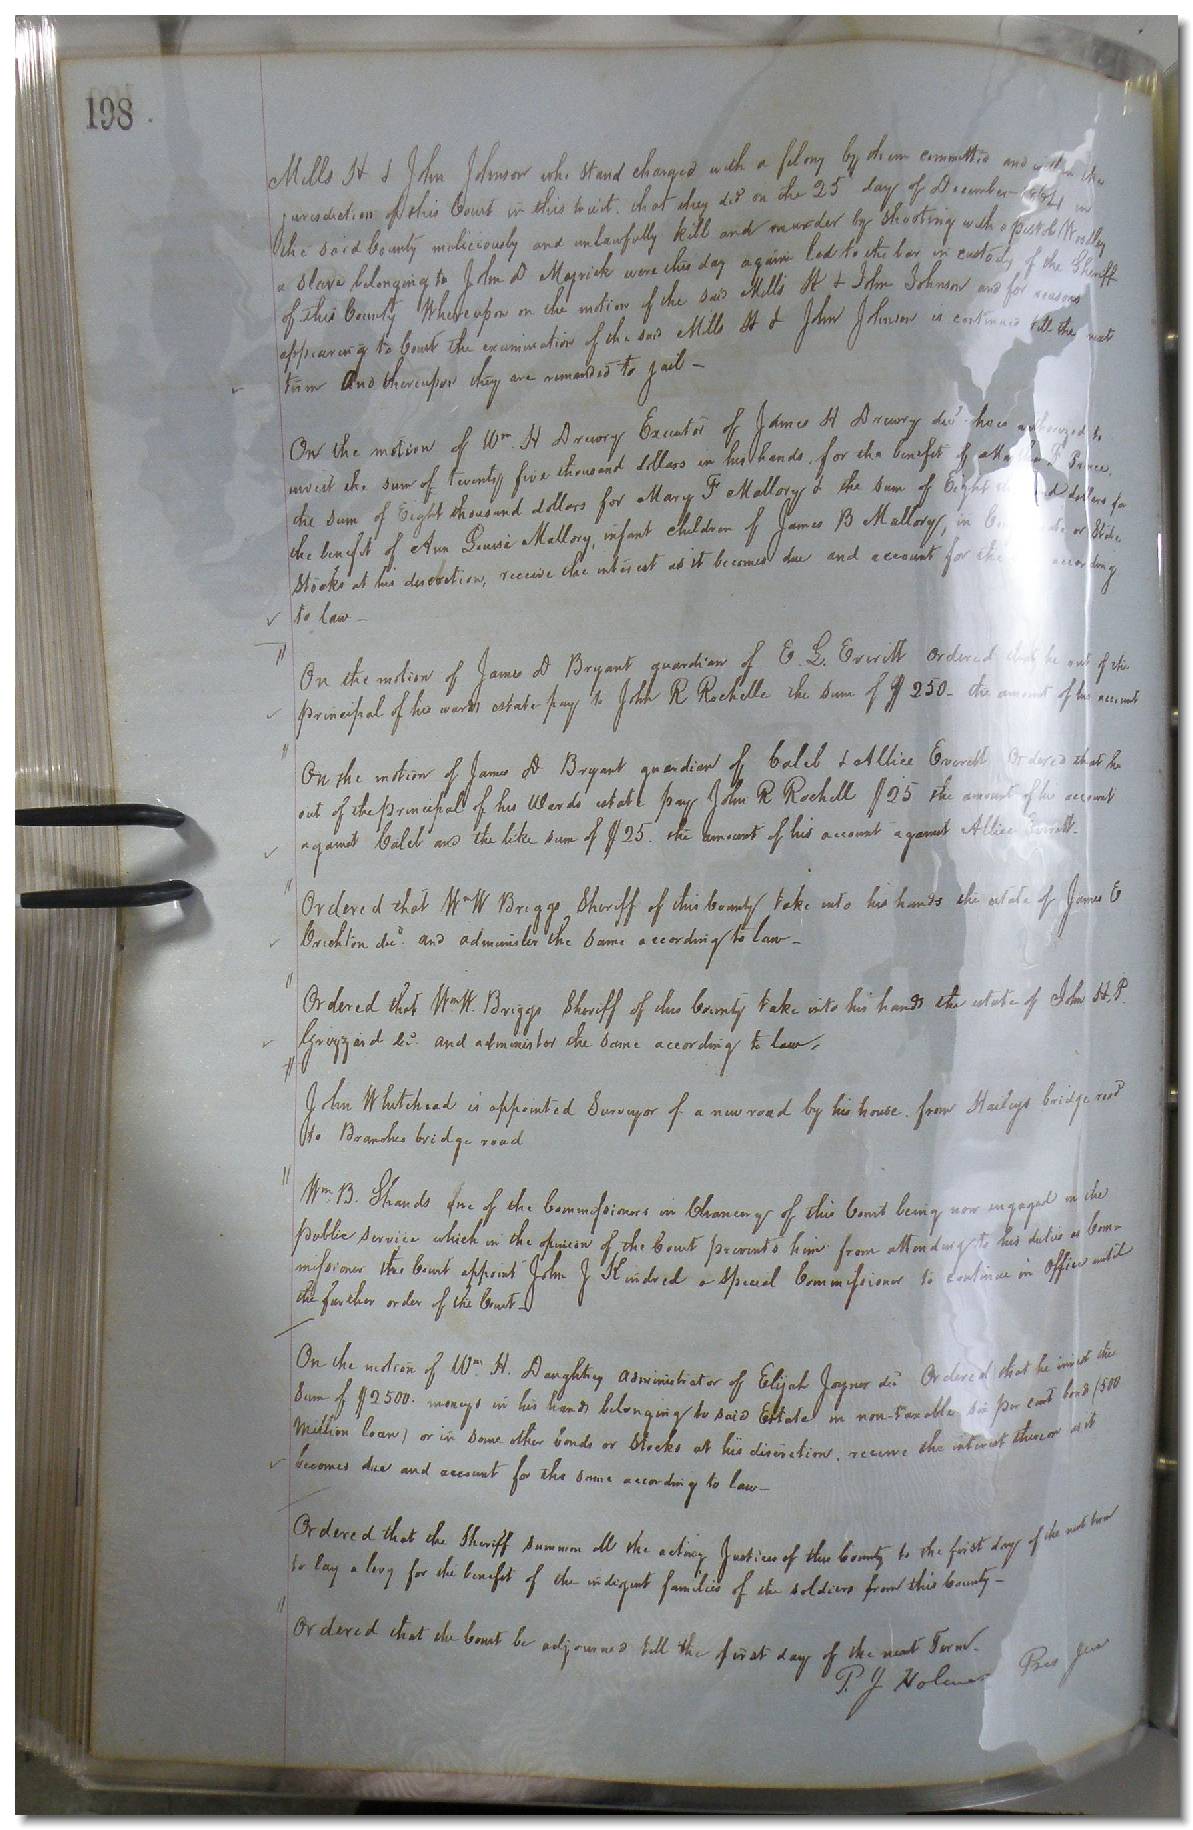 198
Mills H & John Johnson who stand charged with a felony by them committed and within the
jurisdiction of this Court in this to wit. that they did on the 25 day of December in
the said County maliciously and unlawfully kill and murder by shooting with a pistol
a slave belonging to John D Magrick were this day again led to the bar in custody of the Sheriff
of this County Whereupon on the motion of the said Mills H & John Johnson and for reasons
appearing to Court the examination of the said Mills H & John Johnson is continued till the next
term And thereupon they are remanded to jail —
On the motion of Wm. H Drewry Executor of James H Drewry decd. he is authorized to
invest the sum of twenty five thousand dollars in his hands, for the benefit of F Prince,
the sum of Eight thousand dollars for Mary F Mallory & the sum of Eight dollars for
the benefit of Ann Louisa Mallory, infant children of James B Mallory, in or State
Stocks at his discretion, receive the interest as it becomes due and account for the according
to law —
On the motion of James D Bryant guardian of E. L. Everitt ordered that he out of the
principal of his wards estate pay to John R Rochelle the sum of $250 — the amount of his account
On the motion of James D Bryant guardian of Caleb & Allice Everett Ordered that he
out of the principal of his Wards estate pay John R Rochell $25 the amount of his account
against Caleb and the like sum of $25. the amount of his account against Allice Everett —
Ordered that Wm W Briggs Sheriff of this County take into his hands the estate of James E
Crichton decd. and administer the same according to law —
Ordered that Wm W. Briggs Sheriff of this County take into his hands the estate of John H. P.
Grizzard decd. and administer the same according to law.
John Whitehead is appointed Surveyor of a new road by his house, from Haileys bridge road
to Branches bridge road
Wm. B. Shands one of the Commissioners in Chancery of this Court being now engaged in the
public service which in the opinion of the Court prevents him from attending to his duties as Com-
missioner the Court appoint John J Kindred a Special Commissioner to continue in Office until
the further order of the Court —
On the motion of Wm. H. Daughtrey administrator of Elijah Joyner decd Ordered that he invest the
Sum of $2500. moneys in his hands belonging to said Estate in non-taxable six per cent bonds (500
Million loan) or in some other bonds or Stocks at his discretion, receive the interest thereon as it
becomes due and account for the same according to law —
Ordered that the Sheriff summon all the acting Justices of this County to the first day of the next term
to lay a levy for the benefit of the indigent families of the soldiers from this County —
Ordered that the Court be adjourned till the first day of the next Term.
P. J Holmes Pres Jus